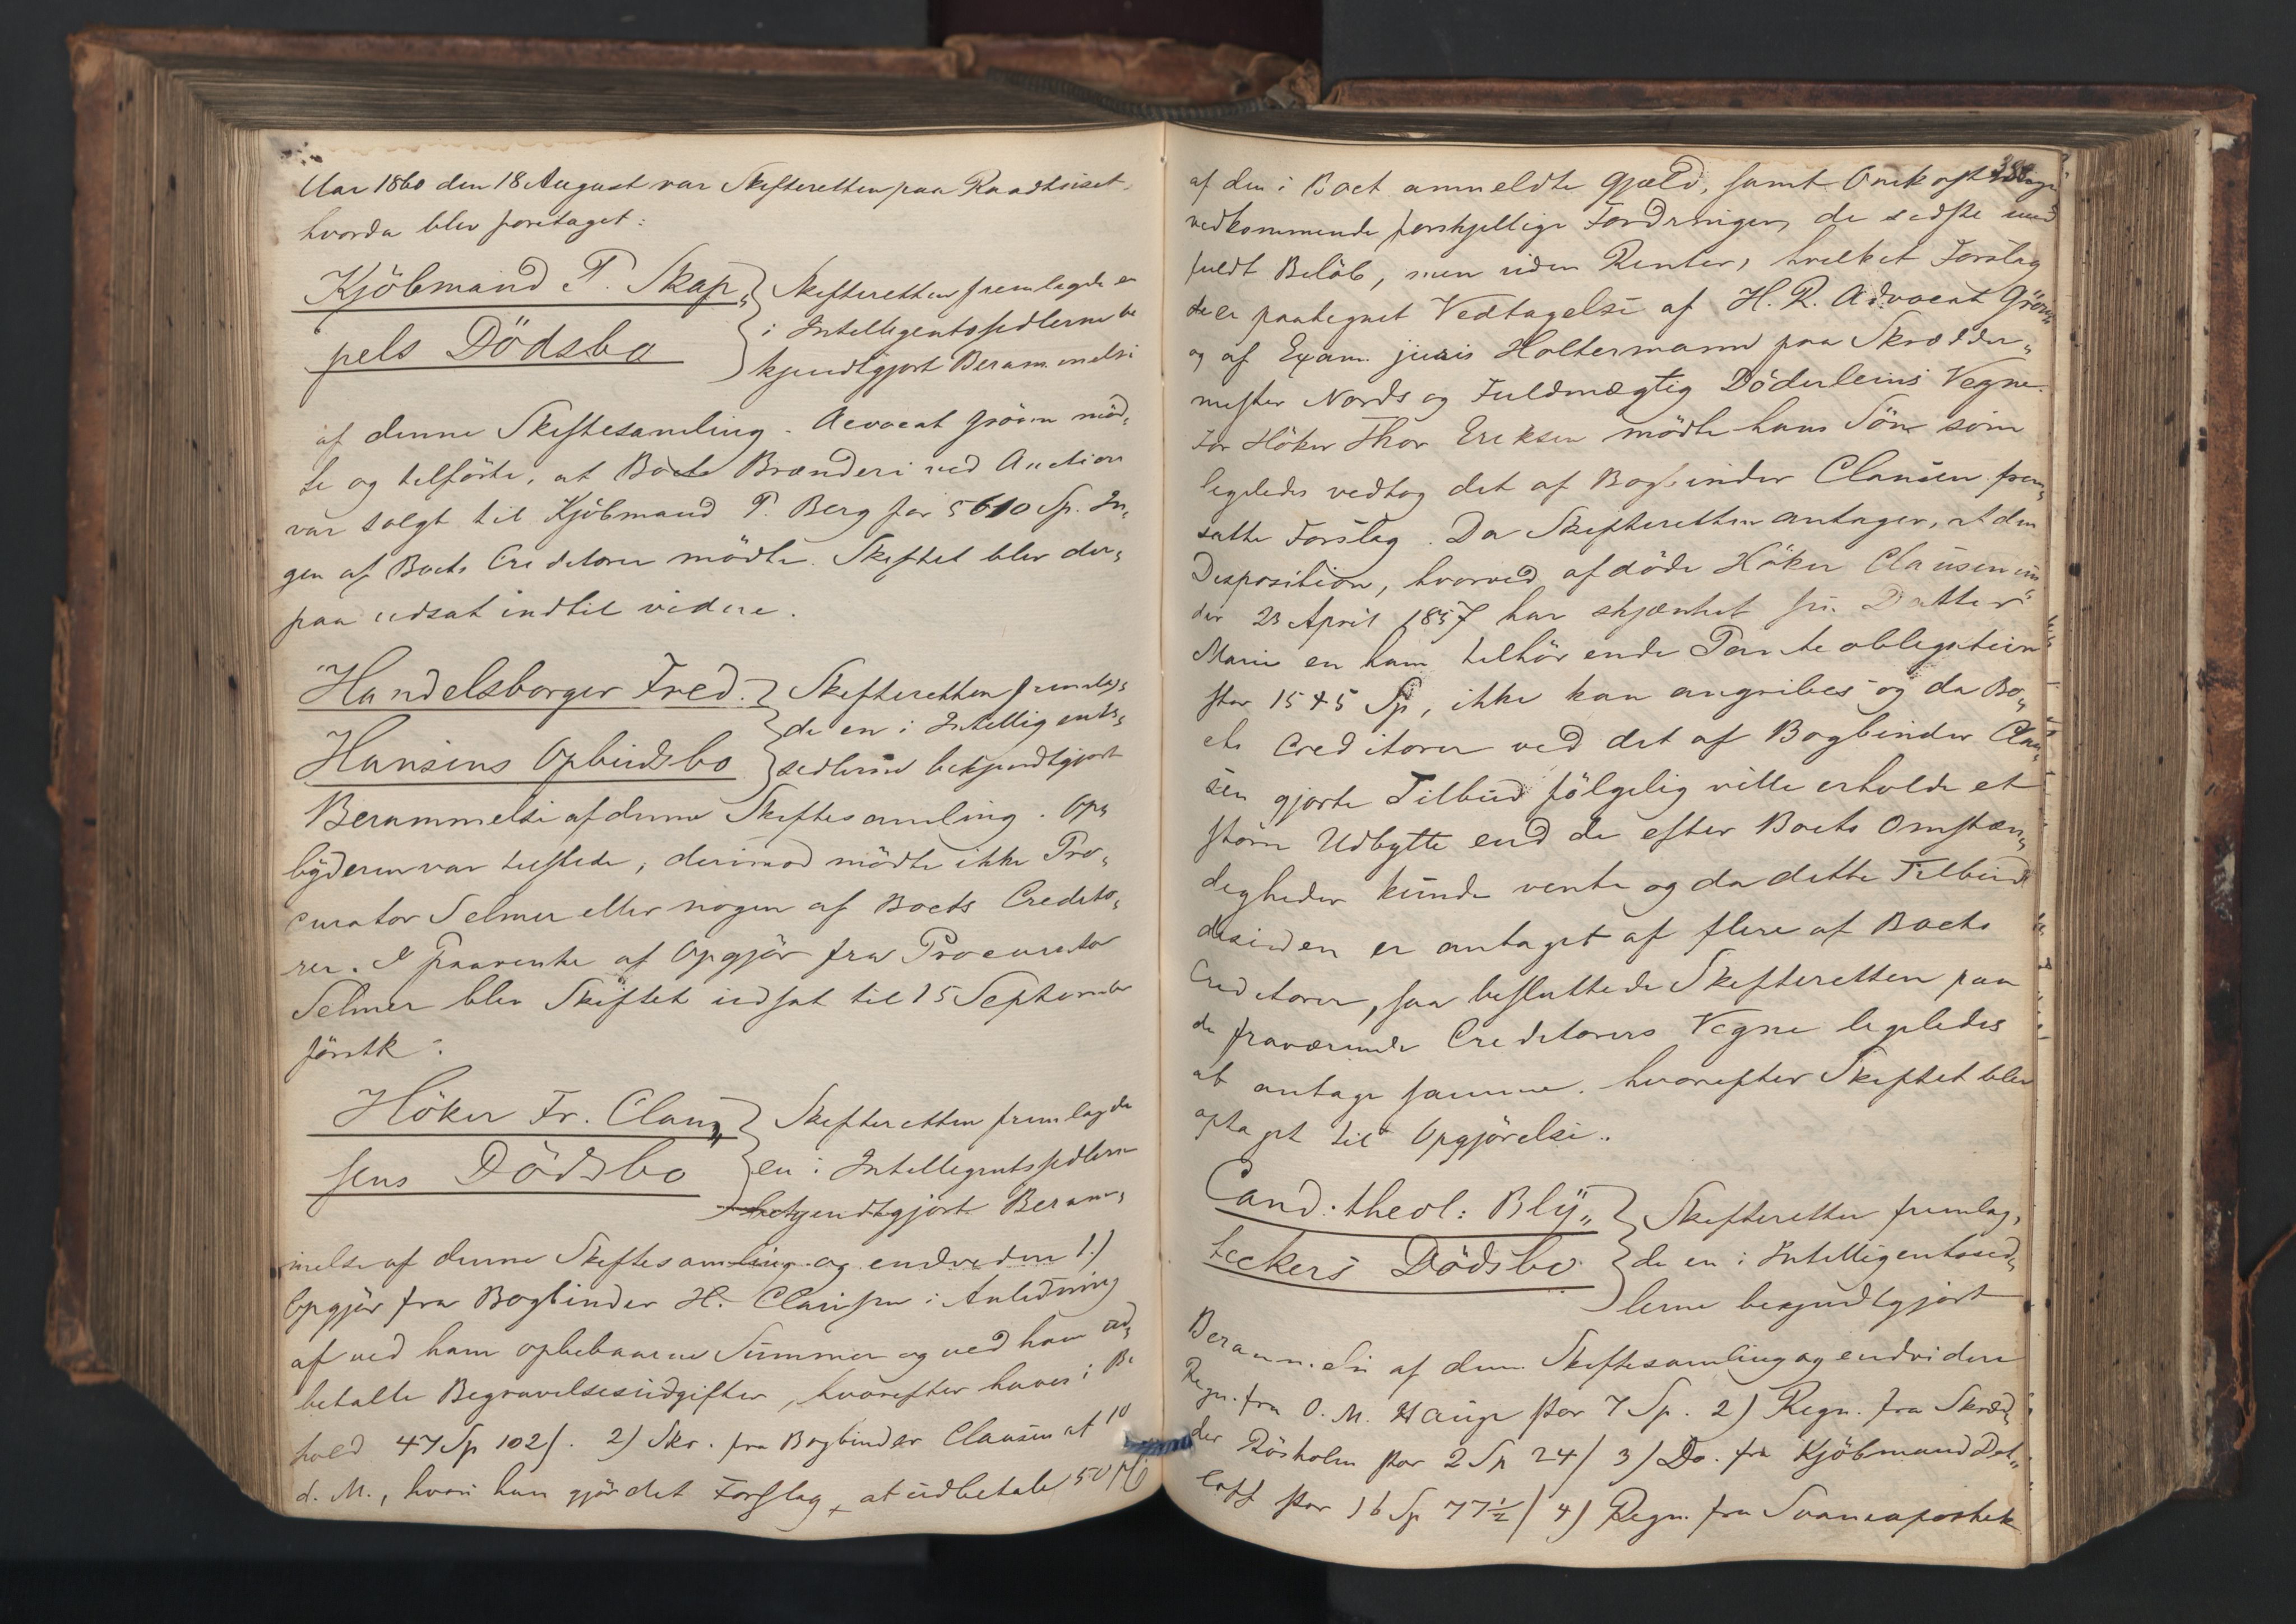 Aar 1860 den 18 August var Skifteretten paa Raadhuset,
hvorda blev foretaget:
Kjöbmand P. Skap„
pels Dödsbo
Skifteretten fremlagde en
i Intelligentssedlerne be
kjendtgjort Berammelse
af denne Skiftesamling. Advocat Grönn möd„
te og tilförte, at Boets Brænderi ved Auction
var solgt til Kjöbmand P. Berg for 5610 Sp. In„
gen af Boets Creditorer mödte. Skiftet blev der„
paa udsat indtil videre.
Handelsborger Fred.
Hansens Opbudsbo
Skifteretten fremlag„
de en i Intelligents„
sedlerne bekjendtgjort
Berammelse af denne Skiftesamling. Op„
byderen var tilstede, derimod mödte ikke Pro„
curator Selmer eller nogen af Boets Credito„
rer. I Paavente af Opgjör fra Procurator
Selmer blev Skiftet udsat til 15 September
förstk.
Höker Fr. Clau„
sens Dödsbo
Skifteretten fremlagde
en i Intelligentssedlerne
bekjendtgjort Beram„
melse af denne Skiftesamling og endvidere 1.)
Opgjör fra Bogbinder H. Clausen i Anledning
af ved ham oppebaarne Summer og ved ham ud„
betalte Begravelsesudgifter, hvorefter haves i Be
hold 47 Sp 102 ſ. 2) Skr. fra Bogbinder Clausen af 10
d. M., hvori han gjör det Forslag, at udbetale 50 %
af den i Boet anmeldte Gjæld, samt
vedkommende forskjellige Fordringer, de sidste med
fuldt Belöb, men uden Renter, hvilket Forslag
der er paategnet Vedtagelse af H. R. Advocat Grönn
og af Exam. juris Holtermann paa Skrædder„
mester Nords og Fuldmægtig Döderleins Vegne.
For Höker Thor Eriksen mödte hans Sön som
ligeledes vedtog det af Bogbinder Clausen frem„
satte Forslag. Da Skifteretten antager, at den
Disposition, hvorved afdöde Höker Clausen un
der 23 April 1857 har skjænket sin Datter
Marie en ham tilhörende Panteobligation
stor 1545 Sp, ikke kan angribes og da Bo„
ets Creditorer ved det af Bogbinder Clau„
sen gjorte Tilbud fölgelig ville erholde et
störe Udbytte end de efter Boets Omstæn„
digheder kunde vente og da dette Tilbud
desuden er antaget af flere af Boets
Creditorer, saa besluttede Skifteretten paa
de fraværende Creditorers Vegne ligeledes
at antage samme, hvorefter Skiftet blev
optaget til Opgjörelse.
Cand. theol: Bly„
teckers Dödsbo
Skifteretten fremlag„
de en i Intelligentssed„
lerne bekjendtgjort
Berammelse af denne Skiftesamling og endvidere
Regn. fra O. M. Hauge stor 7 Sp. 2) Regn. fra Skræd„
der Rösholm stor 2 Sp 24 ſ 3) Do. fra Kjöbmand Det„
loff stor 16 Sp 77½ ſ 4) Regn. fra Svaneapothek